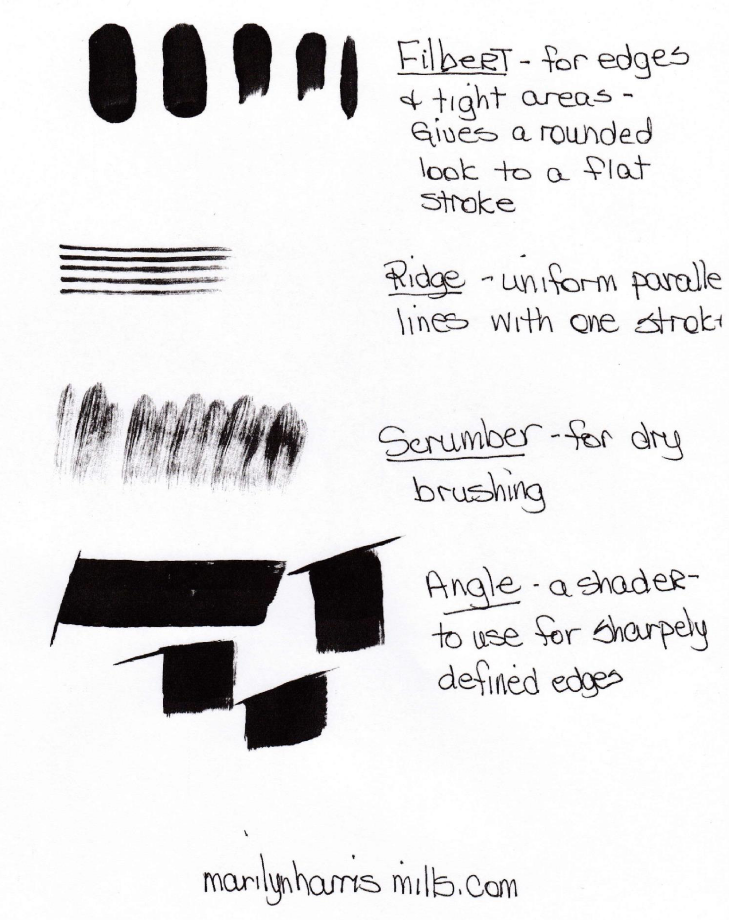 Filbert - for edges
& tight areas -
Gives a rounded
look to a flat
stroke
Ridge - uniform paralle
lines with one strok
Scrumber - for dry
brushing
Angle - a shader-
to use for sharpely
defined edges
marilynharris mills.com